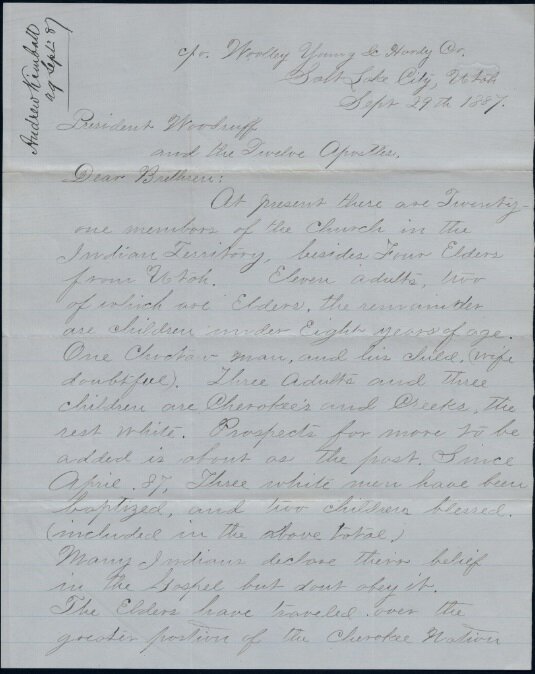 Andrew Kimball
29 Sept. 87
c/o. Woolley Young & Hardy Co.
Salt Lake City, Utah
Sept 29th 1887.
President Woodruff
and the Twelve Apostles.
Dear Brethren:
At present there are Twenty-
one members of the Church in the
Indian Territory, besides Four Elders
from Utah. Eleven adults, two
of which are Elders, the remainder
are children under Eight years of age.
One Choctaw man, and his child, (wife
doubtful). Three Adults and three
children are Cherokee's and Creeks, the
rest white. Prospects for more to be
added is about as the past. Since
April. 87, Three white men have been
baptized, and two children blessed.
(included in the above total.)
Many Indians declare theirs belief
in the Gospel but dont obey it.
The Elders have traveled over the
greater portion of the Cherokee Nation